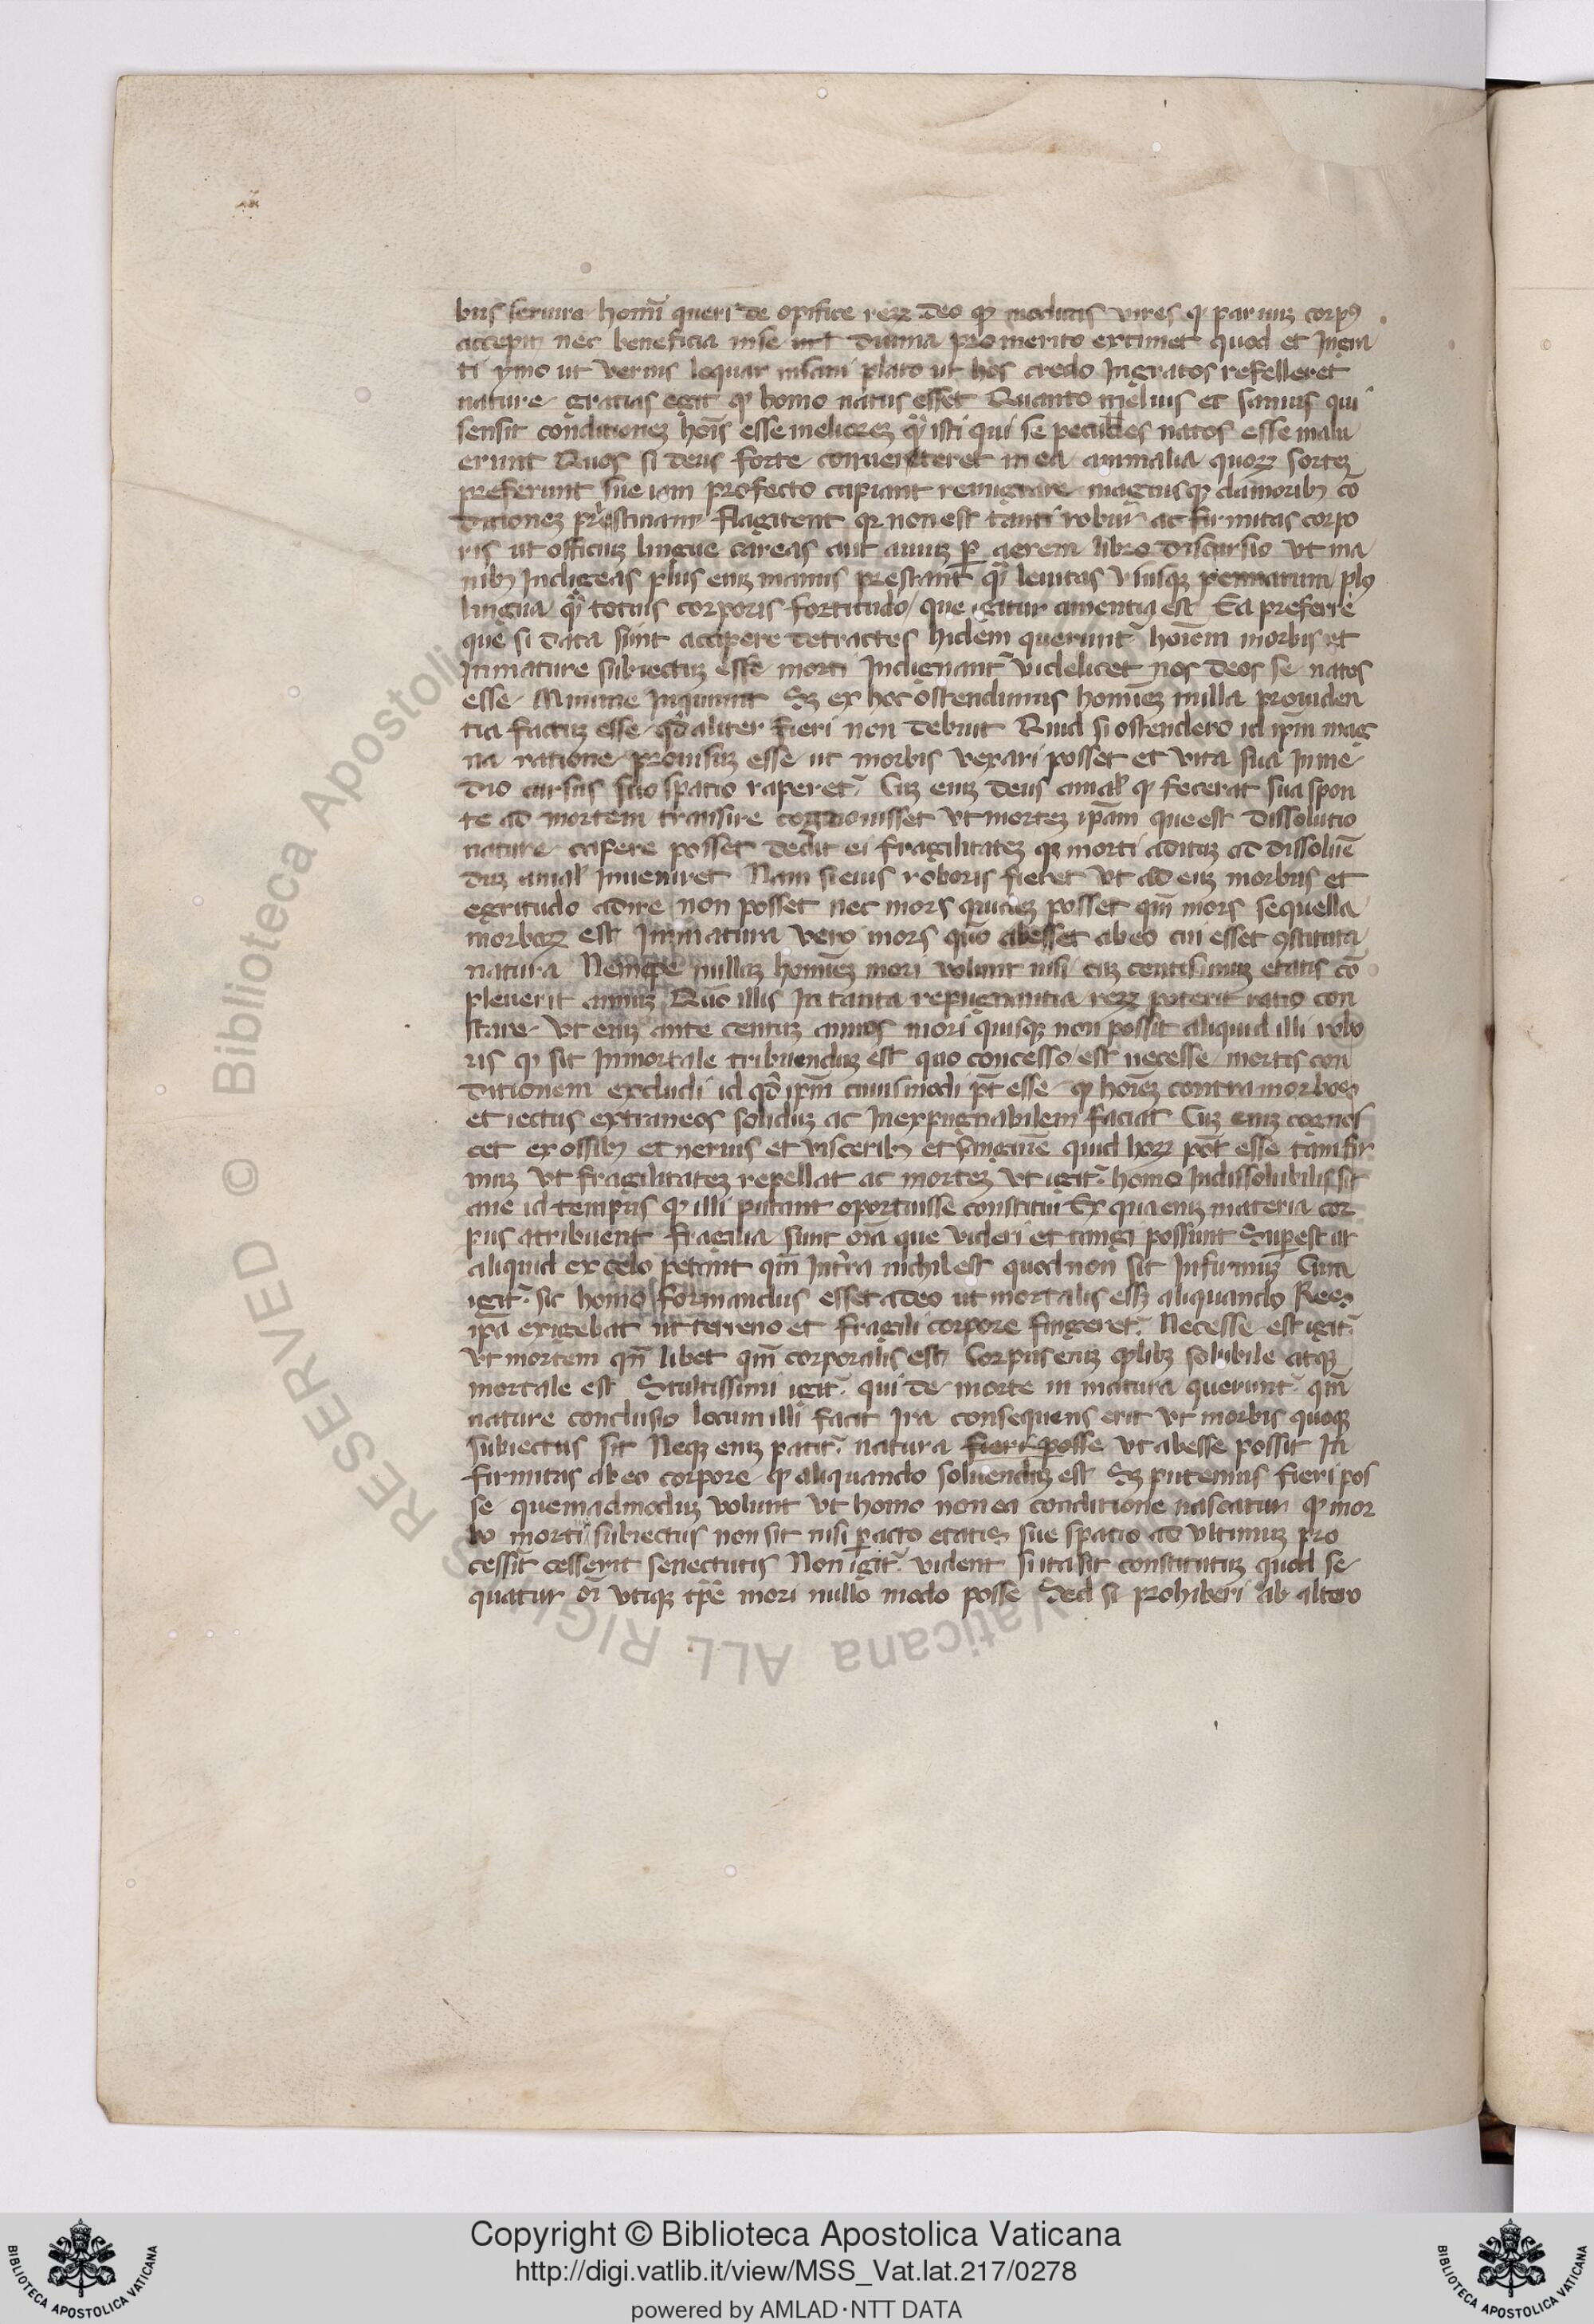 bus seruire homī queri de opifice reꝝ deo qꝫ modicas vires qꝫ paruuꝫ corpꝰ
accepit nec beneficia in se diuina pro merito extimet quod et Ingra
ti ymo ut verius loquar insani plato ut hos credo Ingratos refelleret
nature gratias egit qꝫ homo natus esset Quanto melius et sanius qui
sensit conditioneꝫ hoīs esse melioreꝫ qͣꝫ isti qui se pecudes natos esse malu
erunt Quos si deus forte conuerteret in ea animalia quoꝝ sorteꝫ
preferunt sue iam profecto cupiant remigrare magnisqꝫ clamoribꝫ cō
ditioneꝫ pristinam flagitent qꝛ non est tanti robur ac firmitas corpo
ris ut officiuꝫ lingue careas aut auiuꝫ ꝑ aerem libero discursio vt ma
nibꝫ Indigeas plus eniꝫ manus prestant qͣꝫ leuitas vsusqꝫ pennarum plꝰ
lingua qͣꝫ totius corporis fortitudo que igitur amentia est Ea preferre
que si data sint accipere detractes hidem querunt̄ hoīem morbis et
Inmature subiectuꝫ esse morti Indignant̄ videlicet nos deos se natos
esse Minime Inquiunt Sꝫ ex hoc ostendimus homineꝫ nulla prouiden
tia factuꝫ esse qd̄ aliter fieri non debuit Quid si ostendero id ipm̄ mag
na ratione prouisuꝫ esse ut morbis vexari posset et vita sua In me
dio cursus suo spatio raperet̄ Cuꝫ eniꝫ deus animal qꝫ fecerat sua spon
te ad mortem transire cognouisset vt morteꝫ ipām que est dissolutio
nature capere posset dedit ei fragilitateꝫ qꝫ morti adituꝫ ad dissoluē
duꝫ animal Inueniret Nam si eius roboris fieret vt ad euꝫ morbus et
egritudo adire non posset nec mors quideꝫ posset qm̄ mors sequella
morboꝝ est Inmatura vero mors quō abesset ab eo cui esset ꝯstituta
natura Nempe nullaꝫ homineꝫ mori volunt nisi cuꝫ centisimuꝫ etatis cō
pleuerit annuꝫ Quō illis In tanta repugnantia reꝝ poterit ratio con
stare vt eniꝫ ante centuꝫ annos mori quisqꝫ non possit aliquid illi robo
ris qꝫ sit Inmortale tribuenduꝫ est quo concesso est necesse mortis con
ditionem excludi id qd̄ ipm̄ cuiusmodi pt̄ esse qꝫ hoīeꝫ contra morbos
et iectus extraneos soliduꝫ ac Inexpugnabilem faciat Cuꝫ eniꝫ cognos
cet ex ossibꝫ et neruis et visceribꝫ et sanguine quid hoꝝ pōt esse tam fir
muꝫ vt fragilitateꝫ repellat ac morteꝫ vt igit̄ homo Indissolubilis sit
ane id tempus qꝫ illi putant oportuisse constitui Ex qua eniꝫ materia cor
pus atribuent fragilia sunt oīa que videri et tangi possunt Superest ut
aliquid ex celo petant qm̄ In terra nichil est quod non sit Infirmuꝫ Cum
igit̄ sic homo formandus esset a deo ut mortalis essꝫ aliquando Res
ipa exigebat ut terreno et fragili corpore fingeret̄ Necesse est igit̄
vt mortem qn̄ libet qm̄ corporalis est Corpus eniꝫ qͣlibꝫ solubile atqꝫ
mortale est Stultissimi igit̄ qui de morte in matura querunt̄ qm̄
nature conclusio locum illi facit Ira consequens erit vt morbis quoqꝫ
subiectus sit Neqꝫ eniꝫ patit̄ natura fieri posse vt abesse possit In
firmitas ab eo corpore qꝫ aliquando soluenduꝫ est Sꝫ putemus fieri pos
se quemadmoduꝫ volunt vt homo non ea conditione nascatur qꝫ mor
bo morti subiectus non sit nisi ꝑacto etatis sue spatio ad vltimuꝫ pro
cessit cesserit senectutis Non igit̄ vident si ita sit constitutuꝫ quod se
quatur oī vtiqꝫ tp̄e mori nullo modo posse Sed si prohiberi ab altero
Copyright © Biblioteca Apostolica Vaticana
http://digi.vatlib.it/view/MSS_Vat.lat.217/0278
powered by AMLAD·NTT DATA